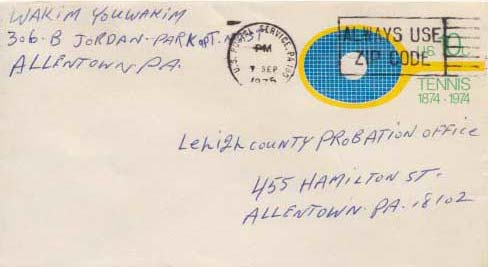 WAKIM YOUWAKIM
306-B JORDAN-PARK APT. N. ST
ALLENTOWN. PA.
U.S. POSTAL SERVICE, PA
PM
7 SEP
1975
ALWAYS USE
ZIP CODE
U.S. 10c
TENNIS
1874 - 1974
LeHigh COUNTY PROBATION OFFICE
455 HAMILTON ST.
ALLENTOWN. PA. 18102